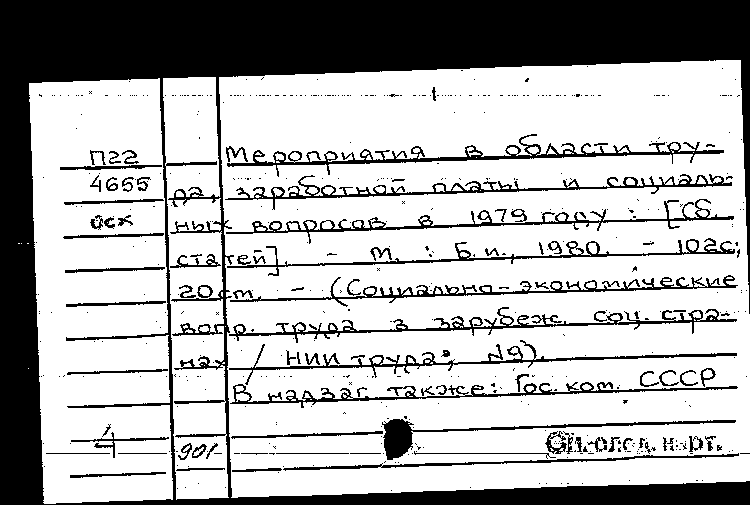 П22 Мероприятия в области тру-
4655 да, заработной платы и социаль-
осх ных вопросов в 1979 году : [Сб.
статей]. - М. : Б. и., 1980. - 102с;
20см. - (Социально-экономические
вопр. труда в зарубеж. соц. стра-
нах / НИИ труда; №9).
В надзаг. также: Гос. ком. СССР
4 901